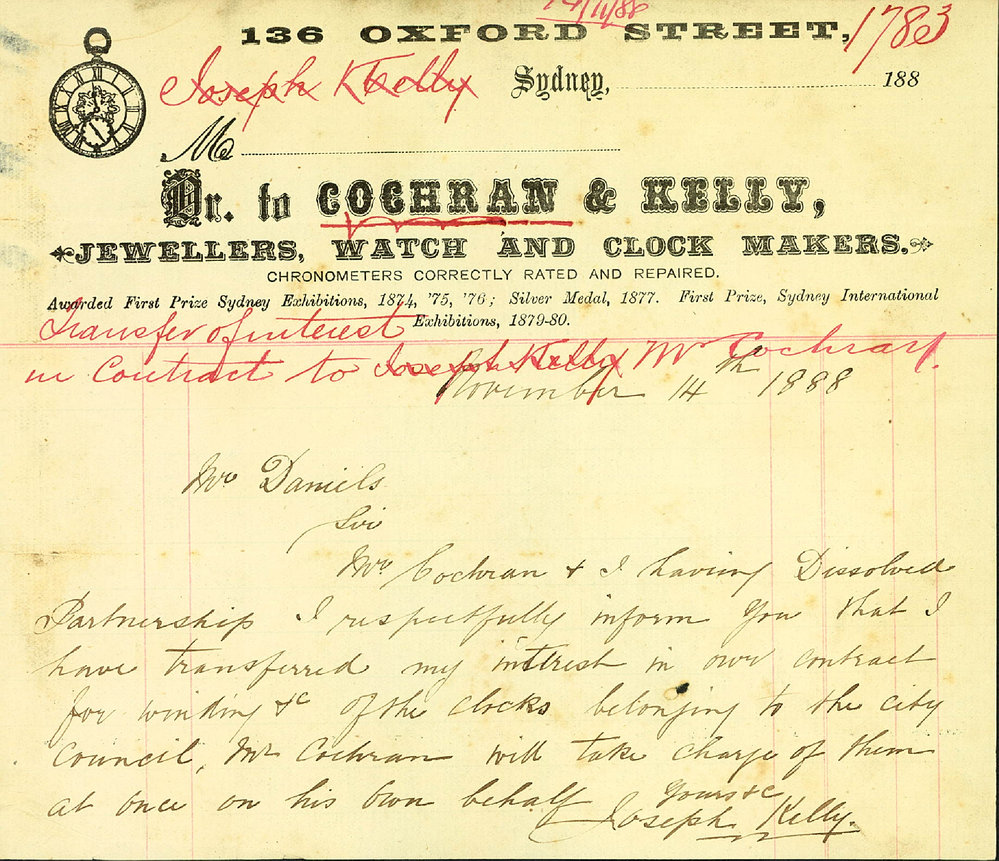 14/11/88
136 OXFORD STREET, 1783
Joseph Kelly Sydney, 188
M
Dr. to COCHRAN & KELLY,
JEWELLERS, WATCH AND CLOCK MAKERS.
CHRONOMETERS CORRECTLY RATED AND REPAIRED.
Awarded First Prize Sydney Exhibitions, 1874, '75, '76; Silver Medal, 1877. First Prize, Sydney International
Exhibitions, 1879-80.
Transfer of interest
in Contract to Joseph Kelly Mr Cochran.
November 14th 1888
Mr Daniels
Sir
Mr Cochran & I having Dissolved
Partnership I respectfully inform you that I
have transferred my intrest in our contract
for winding &c of the clocks belonging to the city
Council, Mr Cochran will take charge of them
at once on his own behalf
Yours &c
Joseph Kelly.